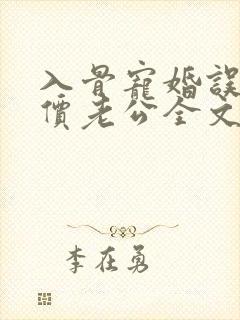 入骨寵婚誤
價老公全文
李在勇